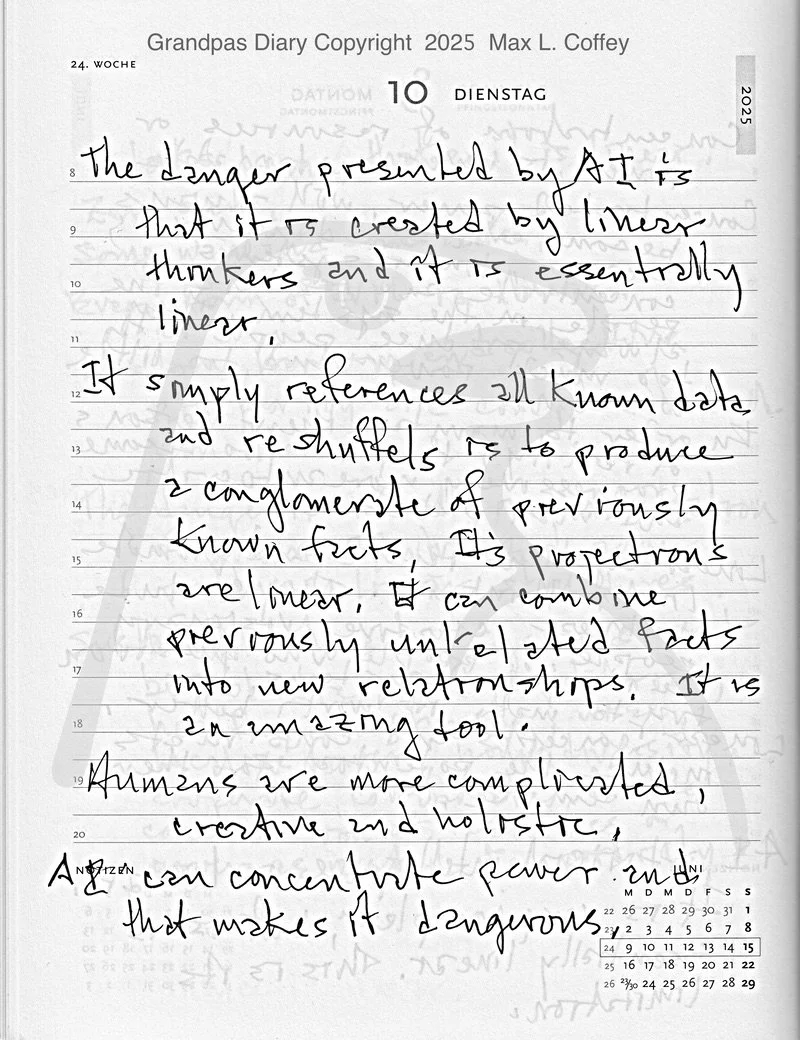 Grandpas Diary Copyright 2025 Max L. Coffey
24. WOCHE
10 DIENSTAG
2025
8 The danger presented by AI is
9 that it is created by linear
10 thinkers and it is essentially
11 linear.
12 It simply references all known data
13 and reshuffels is to produce
14 a conglomerate of previously
15 known facts, It's projections
16 are linear. It can combine
17 previously unrelated facts
into new relationships. It is
18 an amazing tool.
19 Humans are more complicated,
20 creative and holistic,
NOTIZEN
AI can concentrate power and
that makes it dangerous,
JUNI
M D M D F S S
22 26 27 28 29 30 31 1
23 2 3 4 5 6 7 8
24 9 10 11 12 13 14 15
25 16 17 18 19 20 21 22
26 23/30 24 25 26 27 28 29